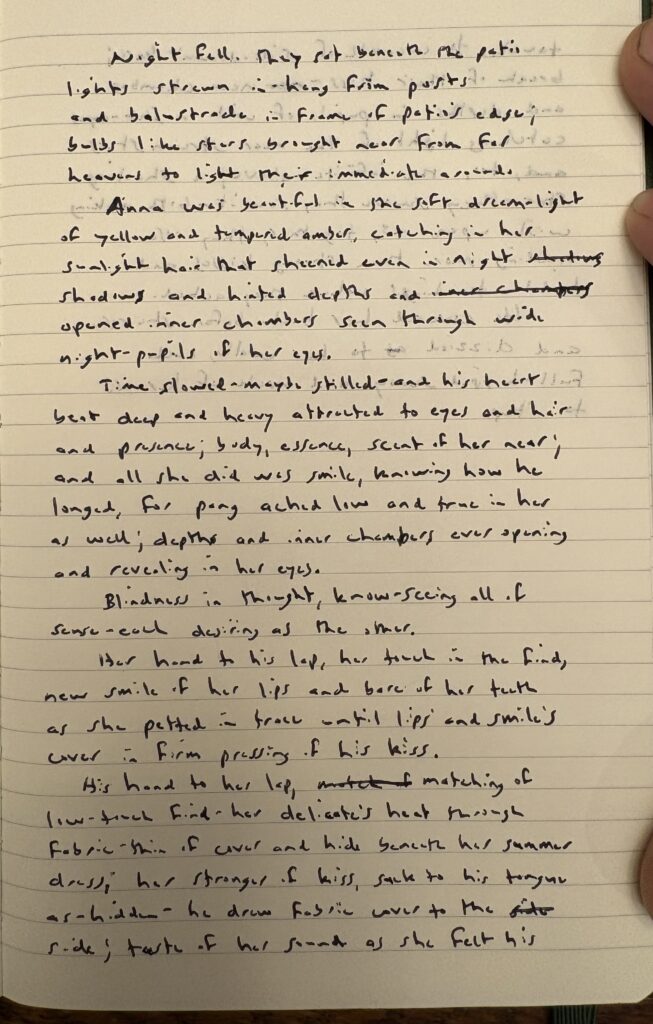 Night fell. They sat beneath the patio
lights strewn in-hang from posts
and balustrade in frame of patio's edge;
bulbs like stars brought near from far
heavens to light their immediate around.
Anna was beautiful in the soft dream-light
of yellow and tempered amber, catching in her
sunlight hair that sheened even in night shadows
shadows and hinted depths and inner chambers
opened inner chambers seen through wide
night-pupils of her eyes.
Time slowed-maybe stilled-and his heart
beat deep and heavy attracted to eyes and hair
and presence; body, essence, scent of her near;
and all she did was smile, knowing how he
longed, for pang ached low and true in her
as well; depths and inner chambers ever opening
and revealing in her eyes.
Blindness in thought, know-seeing all of
sense-each desiring as the other.
Her hand to his lap, her touch in the find,
new smile of her lips and bare of her teeth
as she petted in trace until lips and smile's
cover in firm pressing of his kiss.
His hand to her lap, match of matching of
low-touch find-her delicate's heat through
fabric-thin of cover and hide beneath her summer
dress; her stronger of kiss, suck to his tongue
as-hidden-he drew fabric cover to the side
side; taste of her sound as she felt his